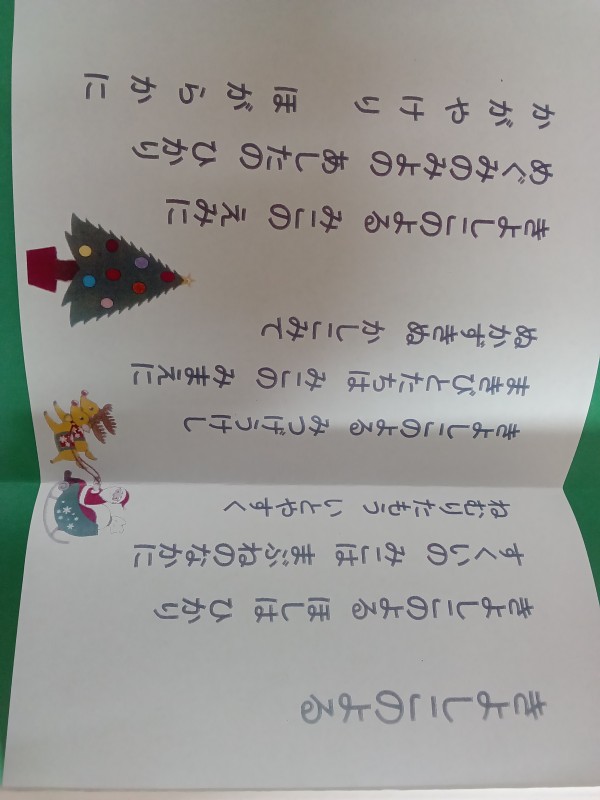 きよしこのよる
きよしこのよる ほしは ひかり
すくいの みこは まぶねのなかに
ねむりたもう いとやすく
きよしこのよる みつげうけし
まきびとたちは みこの みまえに
ぬかずきぬ かしこみて
きよしこのよる みこの えみに
めぐみのみよの あしたの ひかり
かがやけり ほがらかに